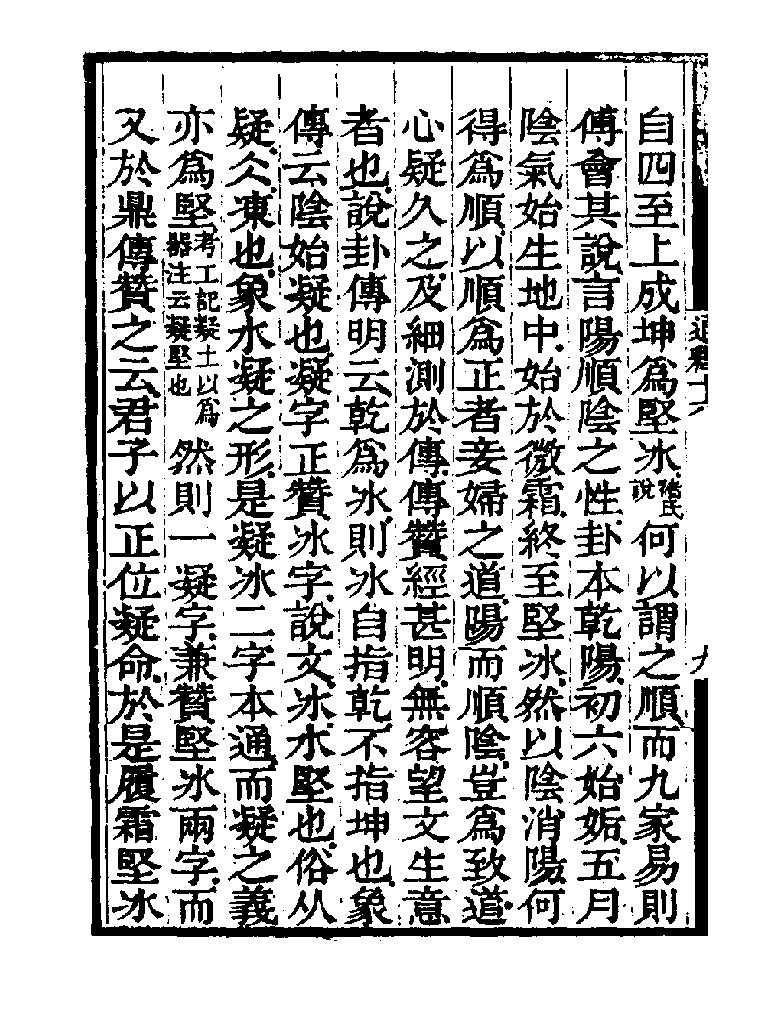 自四至上成坤爲堅冰張氏說何以謂之順而九家易則
傅會其說言陽順陰之性卦本乾陽初六始姤五月
陰氣始生地中始於微霜終至堅冰然以陰消陽何
得爲順以順爲正者妾婦之道陽而順陰豈爲致道
心疑久之及細測於傳傳贊經甚明無容望文生意
者也說卦傳明云乾爲冰則冰自指乾不指坤也象
傳云陰始凝也凝字正贊冰字說文冰水堅也俗从
疑仌凍也象水凝之形是凝冰二字本通而凝之義
亦爲堅考工記凝土以爲器注云凝堅也然則一凝字兼贊堅冰兩字而
又於鼎傳贊之云君子以正位凝命於是履霜堅冰